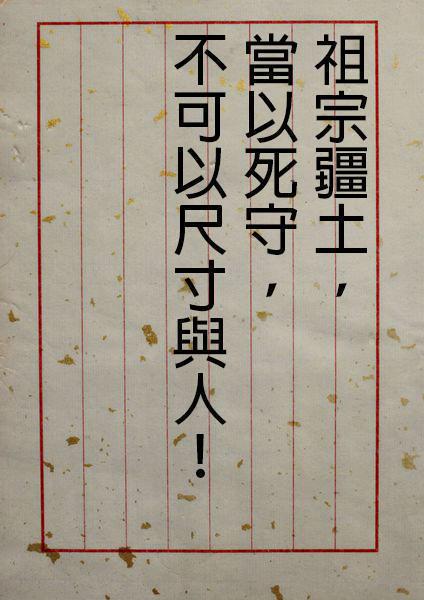 祖宗疆土，
當以死守，
不可以尺寸與人！